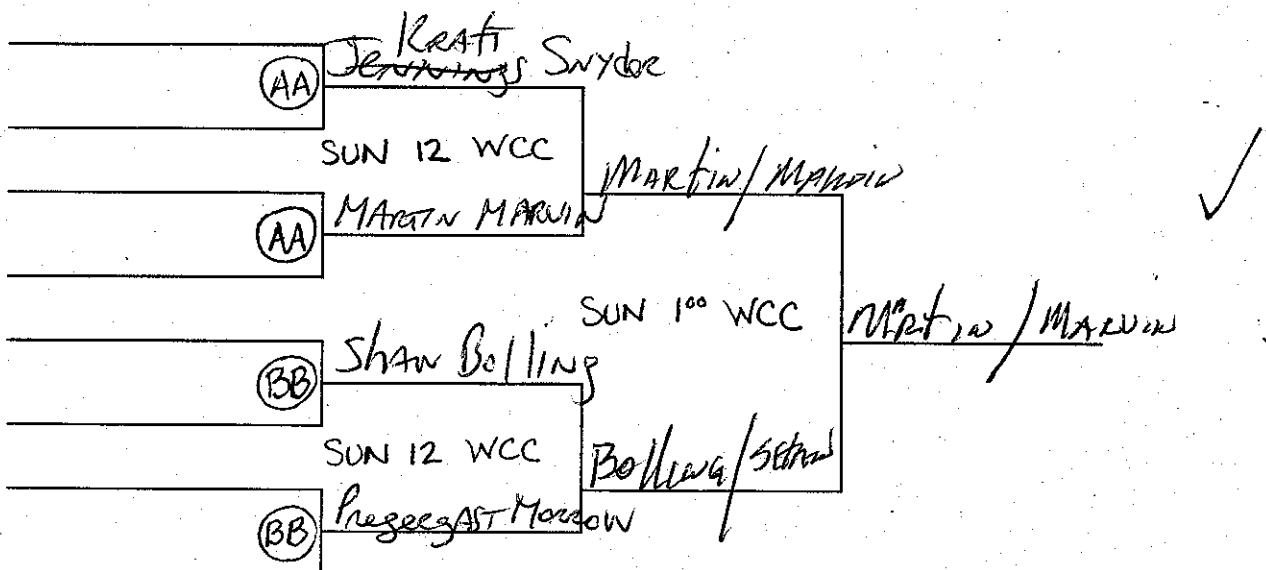 Kraft
AA Jennings Snyder
SUN 12 WCC
Martin / Marvin
AA MARTIN MARVIN
SUN 1⁰⁰ WCC
Martin / MARVIN
BB Shaw Bolling
SUN 12 WCC
Bolling /
BB Morrow